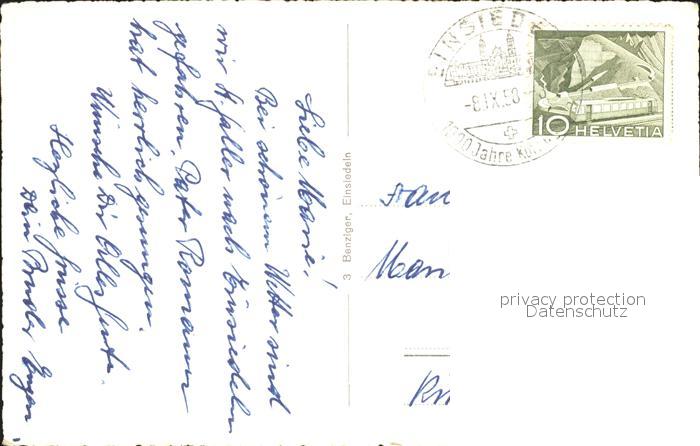 Liebe Marie!
Bei schönem Wetter sind
wir St. Galler nach Einsiedeln
gefahren. Pater Romauer
hat herrlich gesungen.
Wünsche Dir Alles Gute.
Herzliche Grüsse
Dein Bruder Eugen
3 Benziger, Einsiedeln
EINSIEDE
-8.IX.58
1000 Jahre
10 HELVETIA
privacy protection
Datenschutz